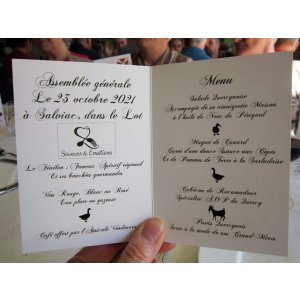 Assemblée générale
Le 23 octobre 2021
à Salviac, dans le Lot
Saveurs & Emotions
Le Fénelon : Fameux Apéritif régional
Et ses bouchées gourmandes
Vins Rouge, Blanc ou Rosé
Eau plate ou gazeuse
Café offert par l'Amicale
Menu
Salade Quercynoise
Accompagnée de sa vinaigrette Maison
à l'huile de Noix du Périgord
Magret de Canard
Garni d'une douce Sauce aux Cèpes
Et de Pommes de Terre à la Sarladaise
Cabécou de Rocamadour
Spécialité A.O.P du Quercy
Pastis Quercynois
Servi à la mode de nos Grand-Mères